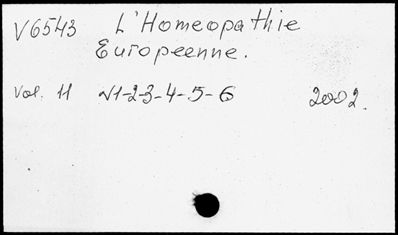 V6543 L'Homeopathie
Européenne.
Vol. 11 N1-2-3-4-5-6 2002.